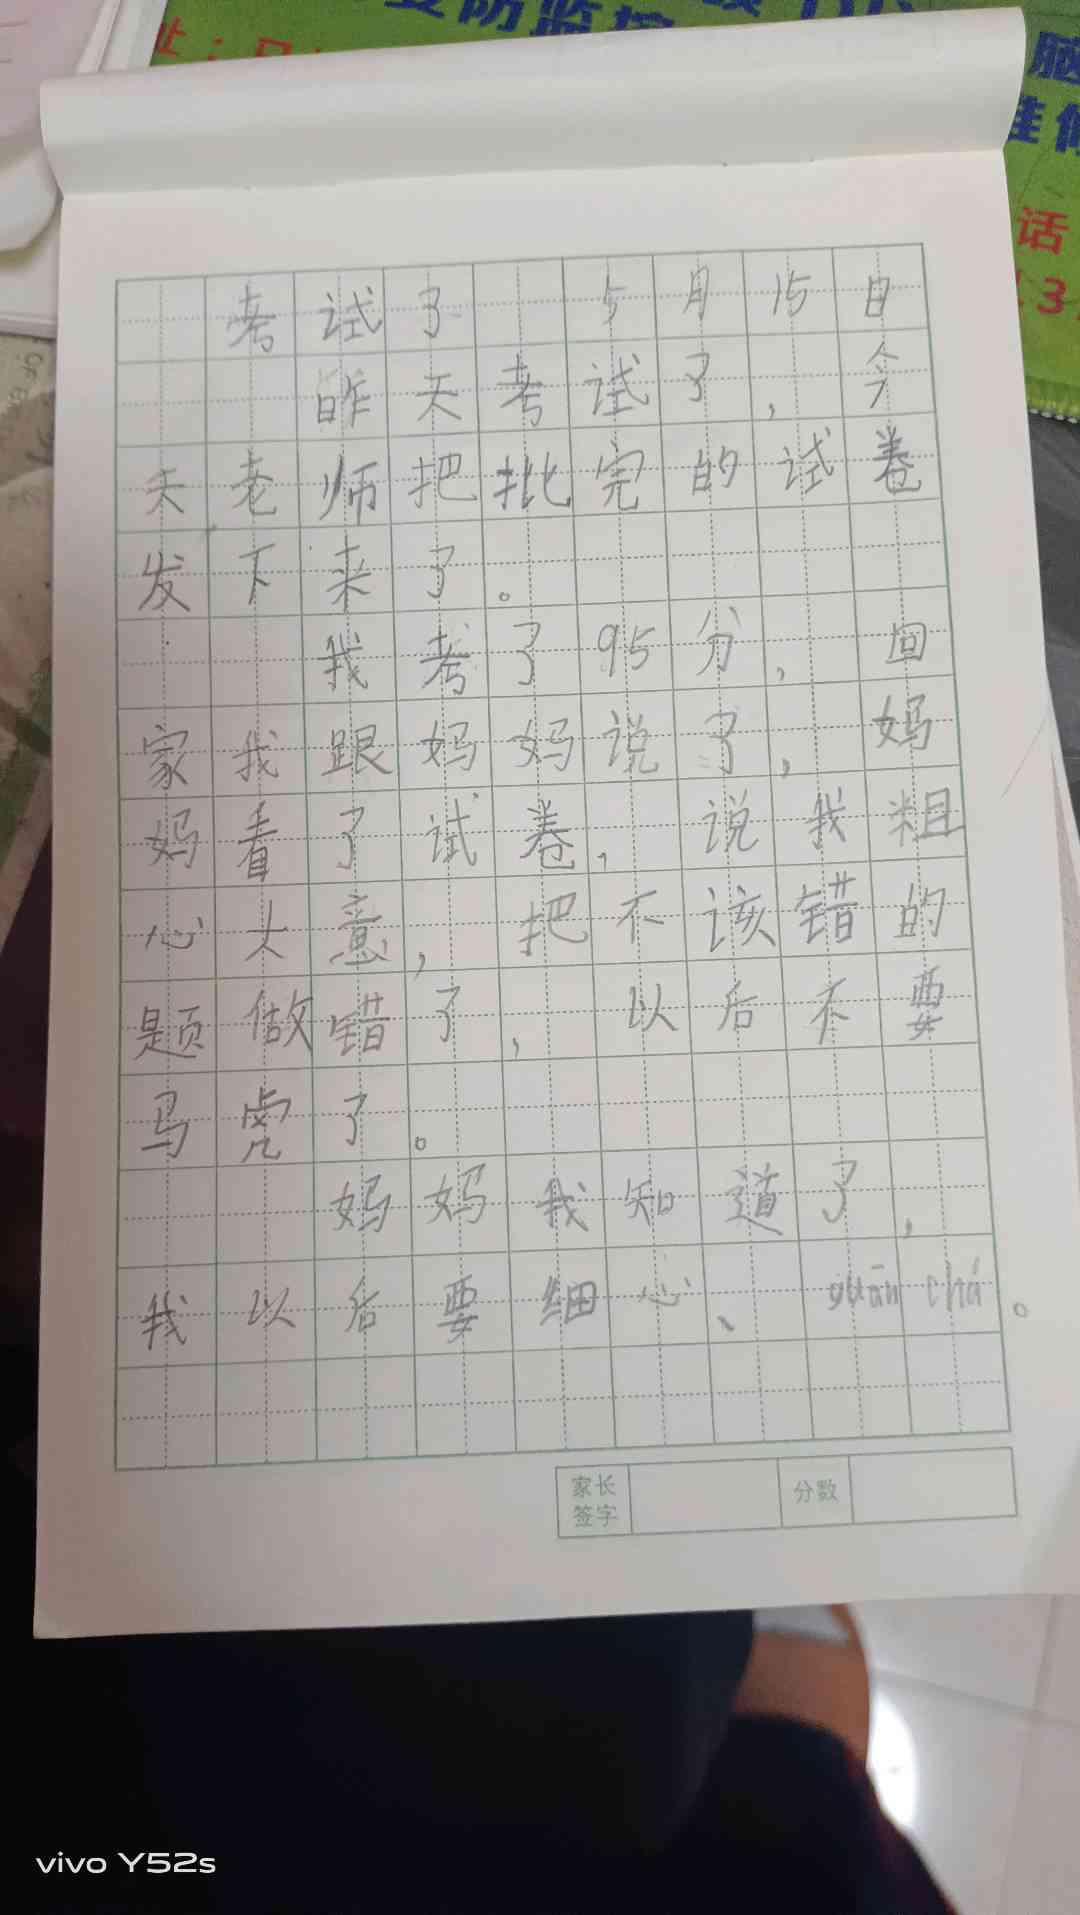 脑
维修
话
3
考试了 5月15日
昨天考试了，今
天老师把批完的试卷
发下来了。
我考了95分，回
家我跟妈妈说了，妈
妈看了试卷，说我粗
心大意，把不该错的
题做错了，以后不要
马虎了。
妈妈我知道了，
我以后要细心、guān chá。
家长
签字
分数
vivo Y52s